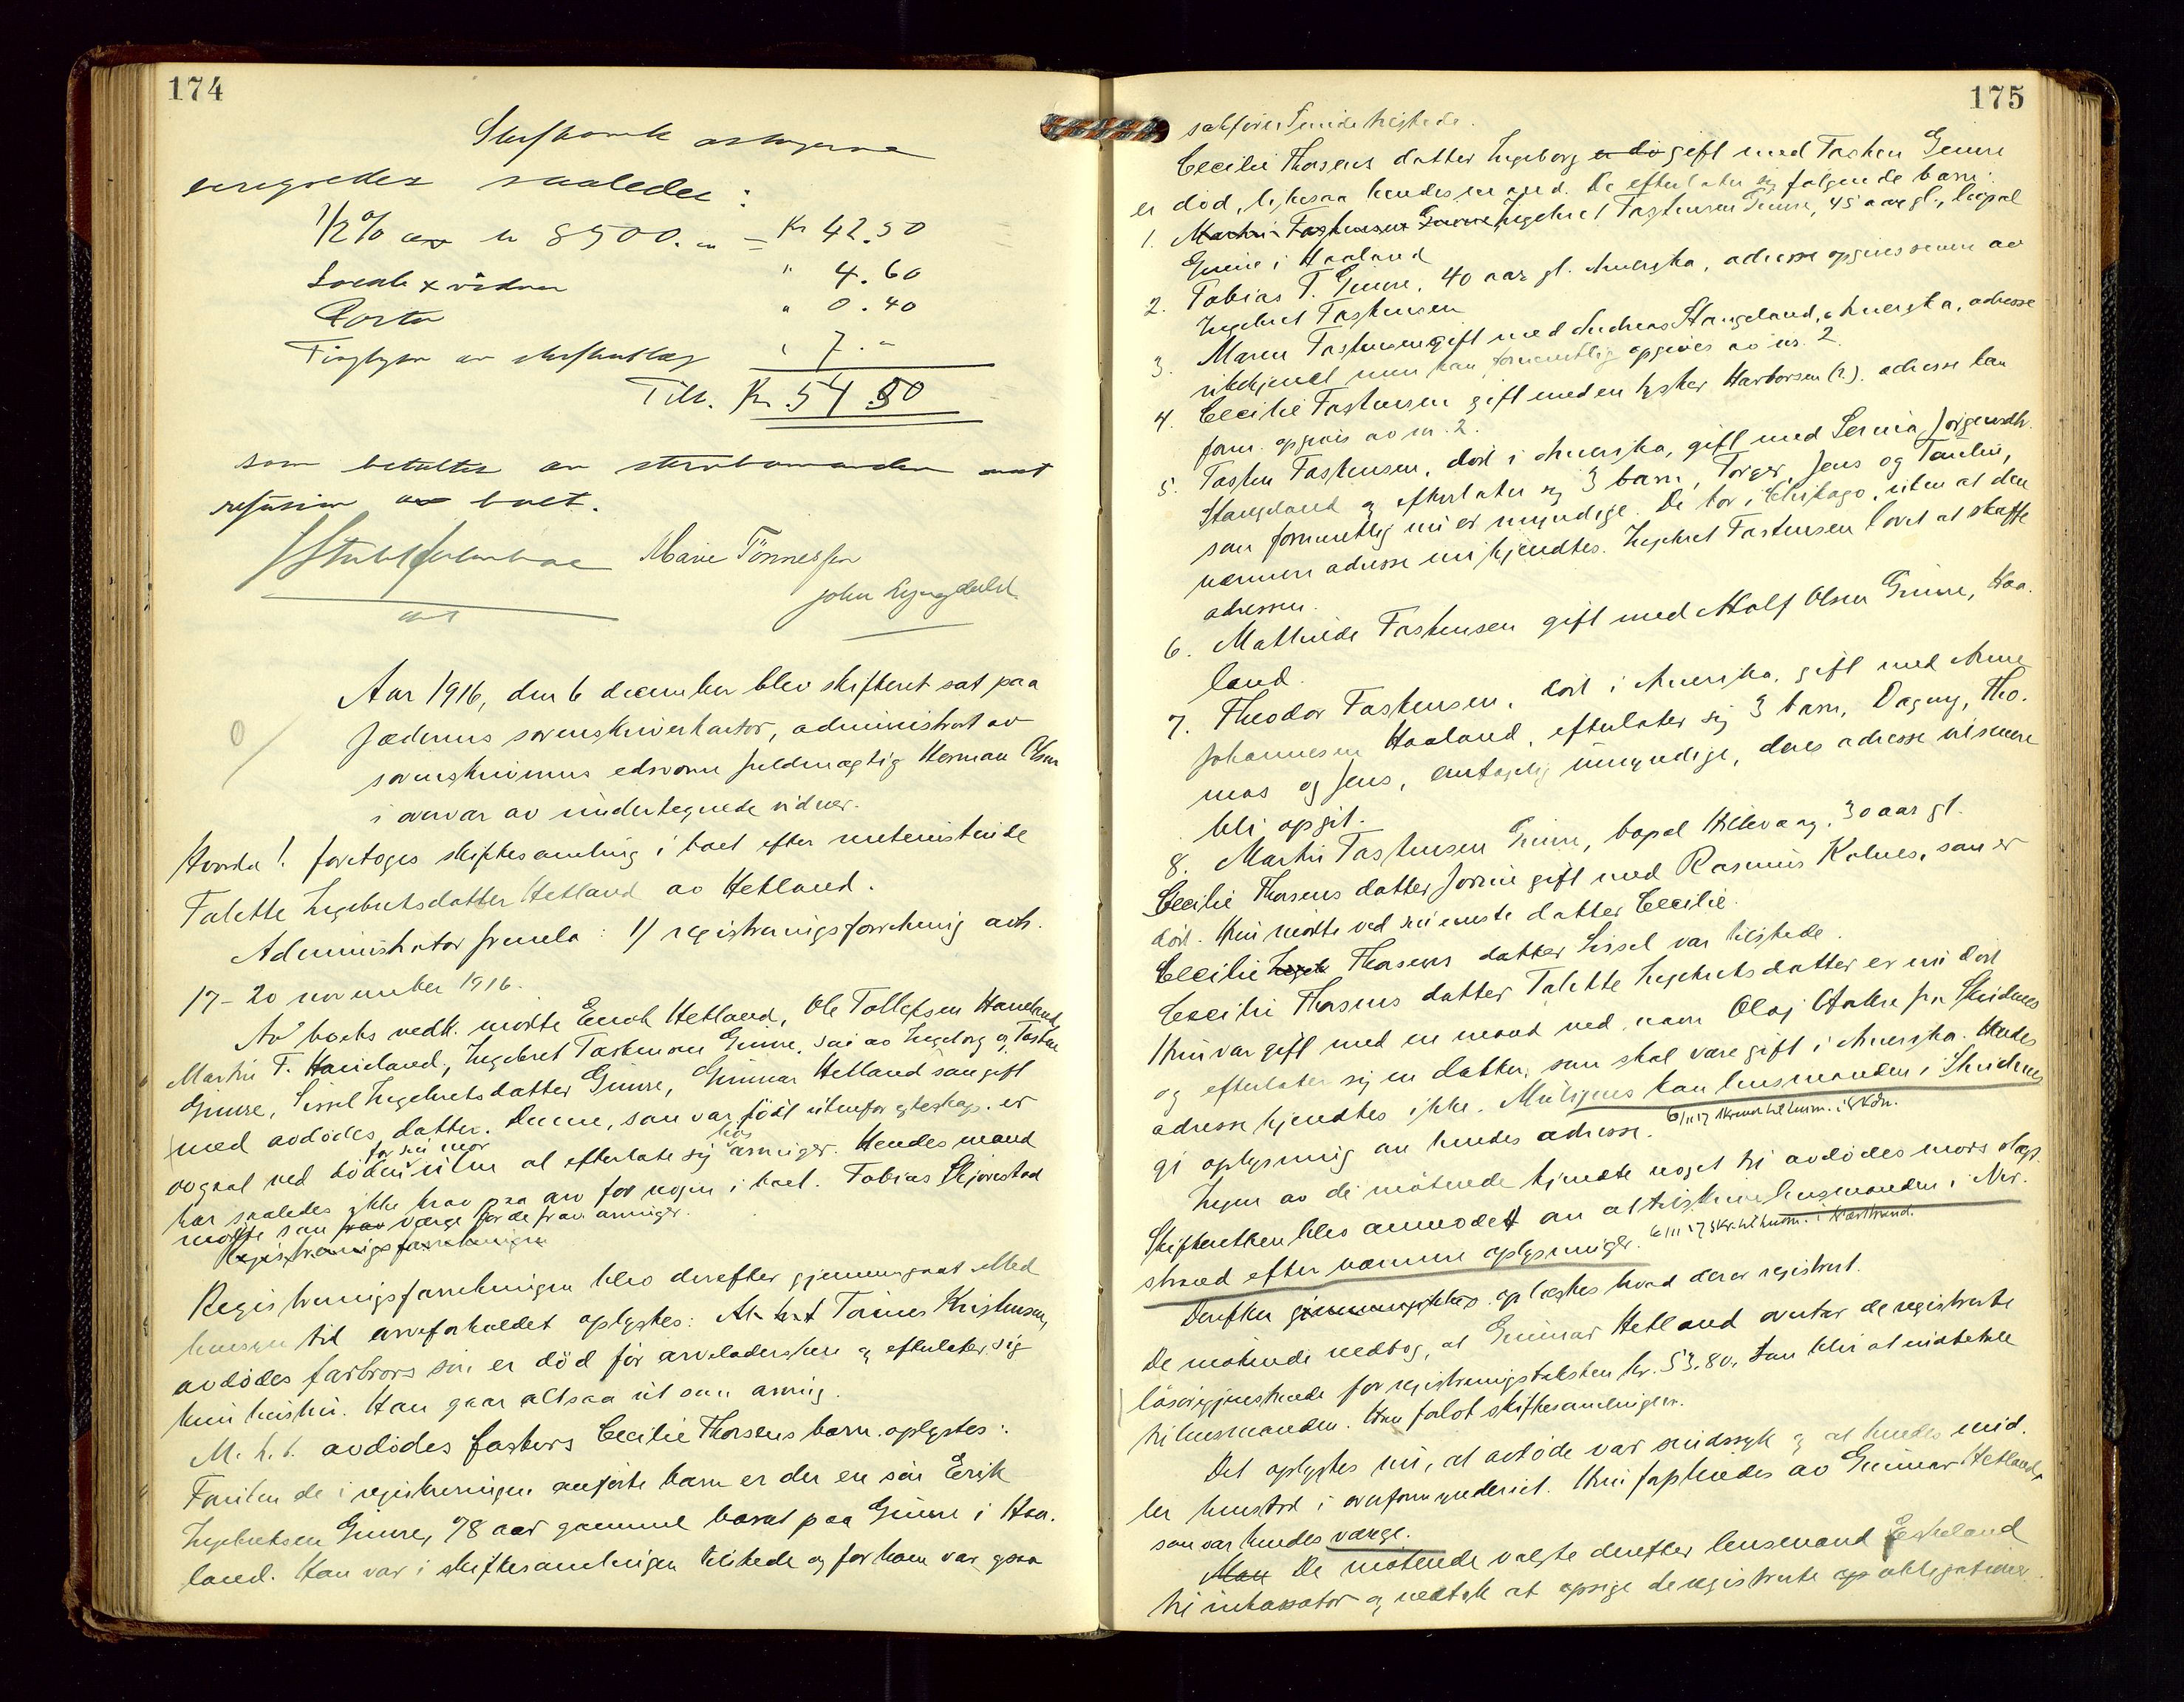 174
Skifteomk
beregnedes saaledes:
1/2% av kr 8500.- = Kr 42.50
Lokale & vidner " 4.60
Porto " 0.40
Tinglysn av skifteutlæg " 7.-
Tils. Kr. 54.50
som betaltes av stervbomanden mot
refusion av boet.
Marie Tönnessen
John
Aar 1916, den 6 december blev skifteret sat paa
Jæderens sorenskriverkontor, administrert av
sorenskriverens edsvorne fuldmægtig Herman Olsen
i overvær av undertegnede vidner.
Hvorda! foretoges skiftesamling i boet efter
Talette Ingebretsdatter Hetland av Hetland.
Administrator fremla: 1) registreringsforretning avh.
17-20 november 1916.
Av boets vedk. mötte Enok Hetland, Ole Tollefsen Haneland,
Martin T. Haneland, Ingebret Tastensen Gimre, sön av Ingeborg og Tasten
Gimre, Sissel Ingebretsdatter Gimre, Gunnar Hetland som gift
med avdödes datter. Denne, som var född utenfor egteskap, er
for sin mor
avgaat ved döden uten at efterlate sig livs arvinger. Hendes mand
har saaledes ikke krav paa arv for nogen i boet. Tobias Skjævestad
mötte som værge for de frav. arvinger.
Registreringsforretningen
Registreringsforretningen blev derefter gjennemgaat. Med
hensyn til arveforholdet oplystes: At Tönnes Kristensen,
avdödes farbrors sön er död för arveladersken og efterlater sig
kun hustru. Han gaar altsaa ut som arving.
M. h. t. avdödes fasters Cecilie Thorsens barn oplystes:
Foruten de i registreringen anförte barn er der en sön Eerik
Ingebretsen Gimre, 78 aar gammel bosat paa Gimre i Haa-
land. Han var i skiftesamlingen tilstede og for ham var ogsaa
175
sakförer Sunde tilstede.
Cecilie Thorsens datter Ingeborg er dö gift med Tasten Gimre
er död, likesaa hendes mand. De efterlater sig fölgende barn:
1. Martin Tastensen Gimre Ingebret Tastensen Gimre, 45 aar gl., bopæl
Gimre i Haaland
2. Tobias T. Gimre, 40 aar gl. Amerika, adresse opgives senere av
Ingebret Tastensen
3. Maren Tastensen gift med Andreas Stangeland, Amerika, adresse
ubekjendt men kan formentlig opgives av nr. 2.
4. Cecilie Tastensen gift med en tysker Harborsen (?). adresse kan
form. opgives av nr. 2.
5. Tasten Tastensen, död i Amerika, gift med Serina Jörgensdtr.
Stangeland og efterlater sig 3 barn, Torger, Jens og Tomine,
som formentlig nu er myndige. De bor i Chikago, uten at den
nærmere adresse nu kjendtes. Ingebret Tastensen lovet at skaffe
adressen.
6. Mathilde Tastensen gift med Adolf Olsen Gimre, Haa-
land.
7. Theodor Tastensen, död i Amerika, gift med Anne
Johannesen Haaland, efterlater sig 3 barn, Dagny, Tho-
mas og Jens, antagelig umyndige, deres adresse vil senere
bli opgit.
8. Martin Tastensen Gimre, bopæl Hillevaag, 30 aar gl.
Cecilie Thorsens datter Jorine gift med Rasmus Kolnes, som er
död. Hun mötte ved sin eneste datter Cecilie.
Cecilie Ingeb Thorsens datter Sissel var tilstede.
Cecilie Thorsens datter Talette Ingebretsdatter er nu död
Hun var gift med en mand ved navn Olaj fra Skudenes
og efterlater sig en datter, som skal være gift i Amerika. Hendes
adresse kjendtes ikke. Muligens kan lensmanden i Skudenes
gi oplysning om hendes adresse. 6/11 17 skrevet til lensm. i Skdn.
Ingen av de mötende kjendte noget til avdödes mors slegt.
Skifteretten blev anmodet om at tilskrive lensmanden i Ner-
strand efter nærmere oplysninger. 6/11 17 skr. til lensm. i Nærstrand.
Derefter gjennemgikkes oplæstes hvad der er registrert.
De mötende vedtog, at Gunnar Hetland overtar de registrerte
lösöregjenstande for registreringstaksten kr. 53.80, som blir at indbetale
til lensmanden. Han forlot skiftesamlingen.
Det oplystes nu, at avdöde var sindssyk og at hendes mid-
ler henstod i overformynderiet. Hun forpleiedes av Gunnar Hetland,
som var hendes værge.
Man De mötende valgte derefter lensmand Eskeland
til inkassator og vedtok at opsige de registrerte op obligationer.